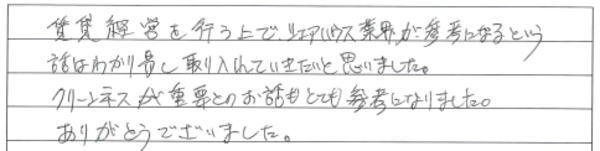 賃貸経営を行う上で、シェアハウス業界が参考になるという
話はわかり易し取り入れていきたいと思いました。
クリーンネスが重要とのお話もとても参考になりました。
ありがとうございました。